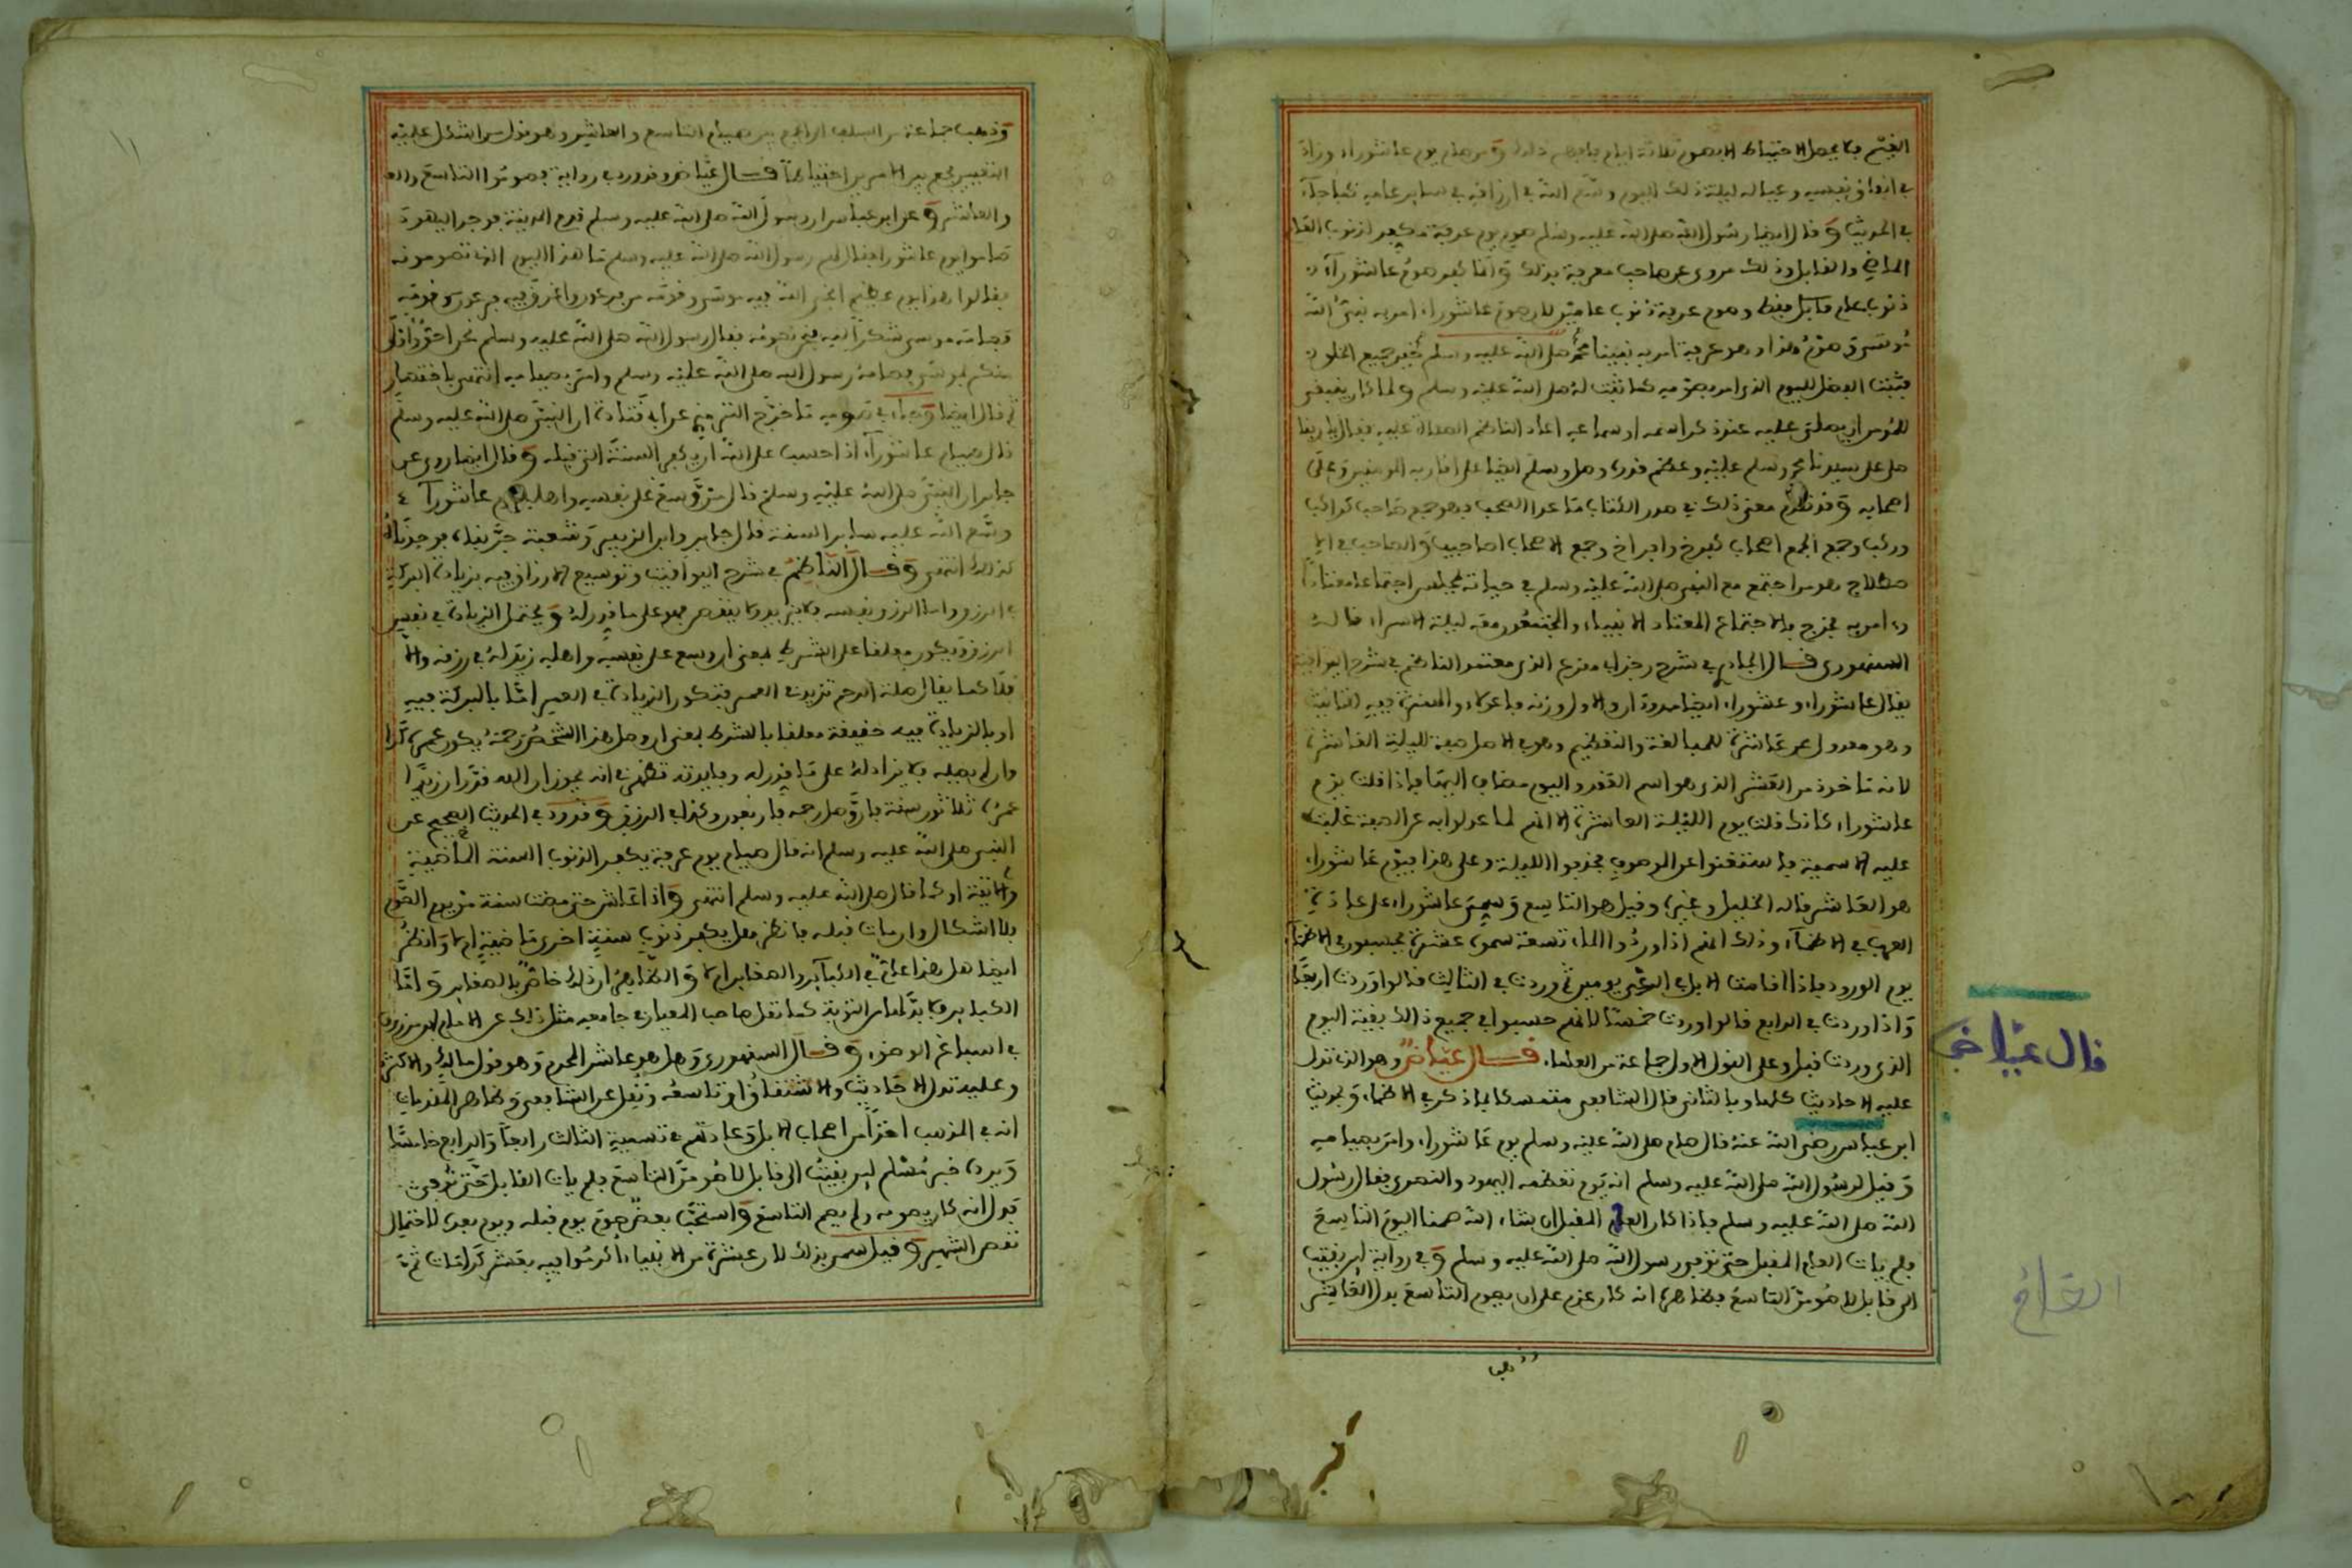 في انفاق نفسه وعياله ليلة ذلك اليوم وسع الله في ارزاقه في ساير عامه كما جاء
في الحديث وقال ايضا رسول الله صلى الله عليه وسلم صوم يوم عرفة مكفر لذنوب العام
الماضي والقابل وذلك مروي عن صاحب معرفة بذلك واما كفر صوم عاشوراء
ذنوب عام قابل فقط وصوم عرفة ذنوب عامين لان صوم عاشوراء امر به نبي الله
موسى وصوم هذا وهو عرفة امر به نبينا محمد صلى الله عليه وسلم خير جميع الخلق
فثبت الفضل لليوم الذي امر بصومه كما ثبت له صلى الله عليه وسلم ولما كان ينبغي
للمومن ان يصلي عليه عند ذكر اسمه او سماعه اعاد الناظم الصلاة عليه فقال يا ربنا
صل على سيدنا محمد وسلم عليه وعظم قدره وصل وسلم ايضا على اقاربه المومنين وعلى
اصحابه وقد تقدم معنى ذلك في صدر الكتاب ما عدا الصحب فهو جمع صاحب كراكب
وركب وجمع الجمع اصحاب كفرخ وافراخ وجمع الاصحاب اصاحيب والصاحب في الا
صطلاح هو من اجتمع مع النبي صلى الله عليه وسلم في حياته بجلس اجتماعا معتادا
السنهوري قال الجادري في شرح رجز ابي مقرع الذي معتمد الناظم في شرح اليواقيت
يقال عاشوراء وعشوراء ايضا ممدودان والاول وزنه فاعولاء والهمزة فيه للتانيث
وهو معدول عن عاشرة للمبالغة والتعظيم وهو في الاصل صفة لليلة العاشرة
لانه ماخوذ من العشر الذي هو اسم العقد واليوم مضاف اليها فاذا قلت يوم
عاشوراء كانك قلت يوم الليلة العاشرة الا انهم لما عدلوا به عن الصفة غلبت
عليه الاسمية فاستغنوا عن الموصوف فحذفوا الليلة وعلى هذا فيوم عاشوراء
هو العاشر قاله الخليل وغيره وقيل هو التاسع وسمي عاشوراء على عادة
العرب في الاظماء وذلك انهم اذا وردوا الماء تسعة سموه عشرة يحسبون في الاظماء
يوم الورود فاذا اقامت الابل في الرعي يومين ثم وردت في الثالث قالوا وردت اربعا
واذا وردت في الرابع قالوا وردت خمسا لانهم حسبوا في جميع ذالك بقية اليوم
الذي وردت قبل وعلى القول الاول جماعة من العلماء قال عياض وهو الذي تدل
عليه الاحاديث كلها وبالثاني قال الشافعي متمسكا بما ذكر في الاظماء وبحديث
ابن عباس رضي الله عنه قال صام صلى الله عليه وسلم يوم عاشوراء وامر بصيامه
وقيل لرسول الله صلى الله عليه وسلم انه يوم تعظمه اليهود والنصرى فقال رسول
الله صلى الله عليه وسلم فاذا كان العام المقبل ان شاء الله صمنا اليوم التاسع
فلم يات العام المقبل حتى توفي رسول الله صلى الله عليه وسلم وفي رواية لئن بقيت
الى قابل لاصومن التاسع فظاهره انه كان عزم على ان يصوم التاسع بدل العاشر
قال عياض
وذهب جماعة من السلف الى الجمع بين صيام التاسع والعاشر وهو قول من اشكل عليه
التعيين فجمع بين الامرين احتياطا قال عياض وقد ورد في رواية فصوموا التاسع والعا
والعاشر وعن ابن عباس ان رسول الله صلى الله عليه وسلم قدم المدينة فوجد اليهود
صاموا يوم عاشوراء فقال لهم رسول الله صلى الله عليه وسلم ما هذا اليوم الذي تصومونه
فقالوا هذا يوم عظيم انجى الله فيه موسى وقومه من فرعون واغرق فيه فرعون وقومه
فصامه موسى شكرا لله فنحن نصومه فقال رسول الله صلى الله عليه وسلم نحن احق واولى
منكم بموسى فصامه رسول الله صلى الله عليه وسلم وامر بصيامه انتهى باختصار
ثم قال ايضا وجاء في صومه ما خرج الترمذي عن ابي قتادة ان النبي صلى الله عليه وسلم
قال صيام عاشوراء اذا احسب على الله ان يكفر السنة التي قبله وقال ايضا روي عن
جابر ان النبي صلى الله عليه وسلم قال من وسع على نفسه واهله يوم عاشوراء
وسع الله عليه ساير السنة قال جابر وابن الزبير وشعبة جربناه فوجدناه
كذلك انتهى وقال الناظم في شرح اليواقيت وتوسيع الارزاق فيه بزيادة البركة
في الرزق واما الرزق نفسه فلا يزيد ولا ينقص فهو على ما قدر له ويحتمل الزيادة في نفس
الرزق ويكون معلقا على الشرط بمعنى ان وسع على نفسه واهله زيد له في رزقه والا
فلا كما يقال صلة الرحم تزيد في العمر فتكون الزيادة في العمر اما بالبركة فيه
او بالزيادة فيه حقيقة معلقا بالشرط بمعنى ان وصل هذا الشخص رحمه يكون عمره كذا
وان لم يصله فلا يزاد له على ما قدر له وفايدته تظهر في انه يجوز ان الله قدر ان زيدا
عمره ثلاثون سنة فان وصل رحمه فاربعون وكذا في الرزق وقد ورد في الحديث الصحيح عن
النبي صلى الله عليه وسلم انه قال صيام يوم عرفة يكفر الذنوب السنة الماضية
والاتية او كما قال صلى الله عليه وسلم انتهى واذا عاش حتى مضت سنة من يوم الصوم
فلا اشكال وان مات قبله فانظر هل يكفر ذنوب سنة اخرى ماضية ام لا وانظر
ايضا هل هذا عام في الكباير والصغاير ام لا والظاهر ان ذلك خاص بالصغاير واما
الكباير فلا بد لها من التوبة كما نقل صاحب المعيار في جامعه مثل ذلك عن الامام ابن مرزوق
في اسباغ الوضوء وقال السنهوري وهل هو عاشر المحرم وهو قول مالك والاكثر
وعليه تدل الاحاديث والاشتقاق او تاسعه ونقل عن الشافعي وظاهر المقدمات
انه في المذهب اخذا من اصحاب الابل وعادتهم في تسمية الثالث رابعا والرابع خامسا
ويرده خبر مسلم لئن بقيت الى قابل لاصومن التاسع فلم يات القابل حتى توفي
فدل انه كان يصومه ولم يصم التاسع واستحب بعض صوم يوم قبله ويوم بعده لاحتمال
نقص الشهر وقيل سمي بذلك لان عشرة من الانبياء اكرموا فيه بعشر كرامات